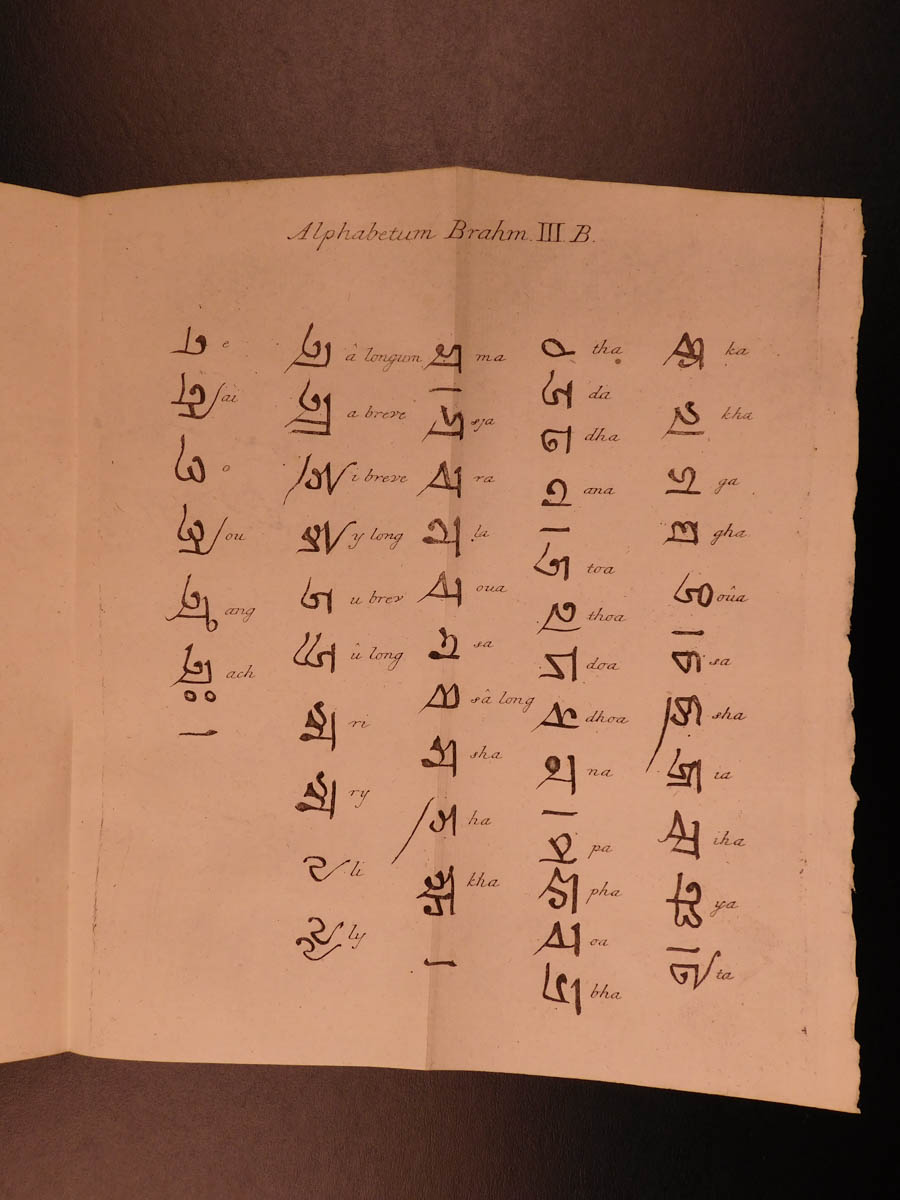 Alphabetum Brahm. III B.
ক ka
খ kha
গ ga
ঘ gha
ঙ oûa
।
চ sa
ছ sha
জ ia
ঝ iha
ঞ ya
।
ট ta
ঠ tha
ড da
ঢ dha
ণ ana
।
ত toa
থ thoa
দ doa
ধ dhoa
ন na
।
প pa
ফ pha
ব oa
ভ bha
ম ma
।
য sja
ৰ ra
ল la
ব oua
শ sa
ষ sâ long
স sha
হ ha
ক্ষ kha
।
অ â longum
আ a breve
ই i breve
ঈ y long
উ u brev
ঊ û long
ঋ ri
ৠ ry
ঌ li
ৡ ly
এ e
ঐ ai
ও o
ঔ ou
অং ang
অঃ ach
।